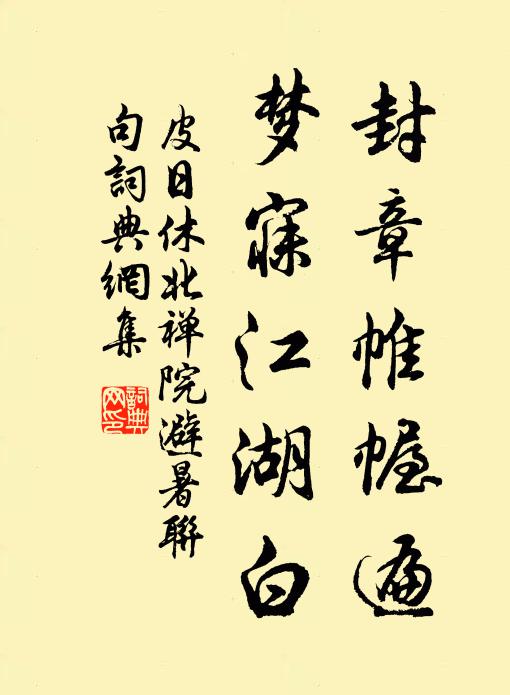 封章帷幄遍
梦寐江湖白
皮日休北禅院避暑聯
句詞典網集
詞典
网印